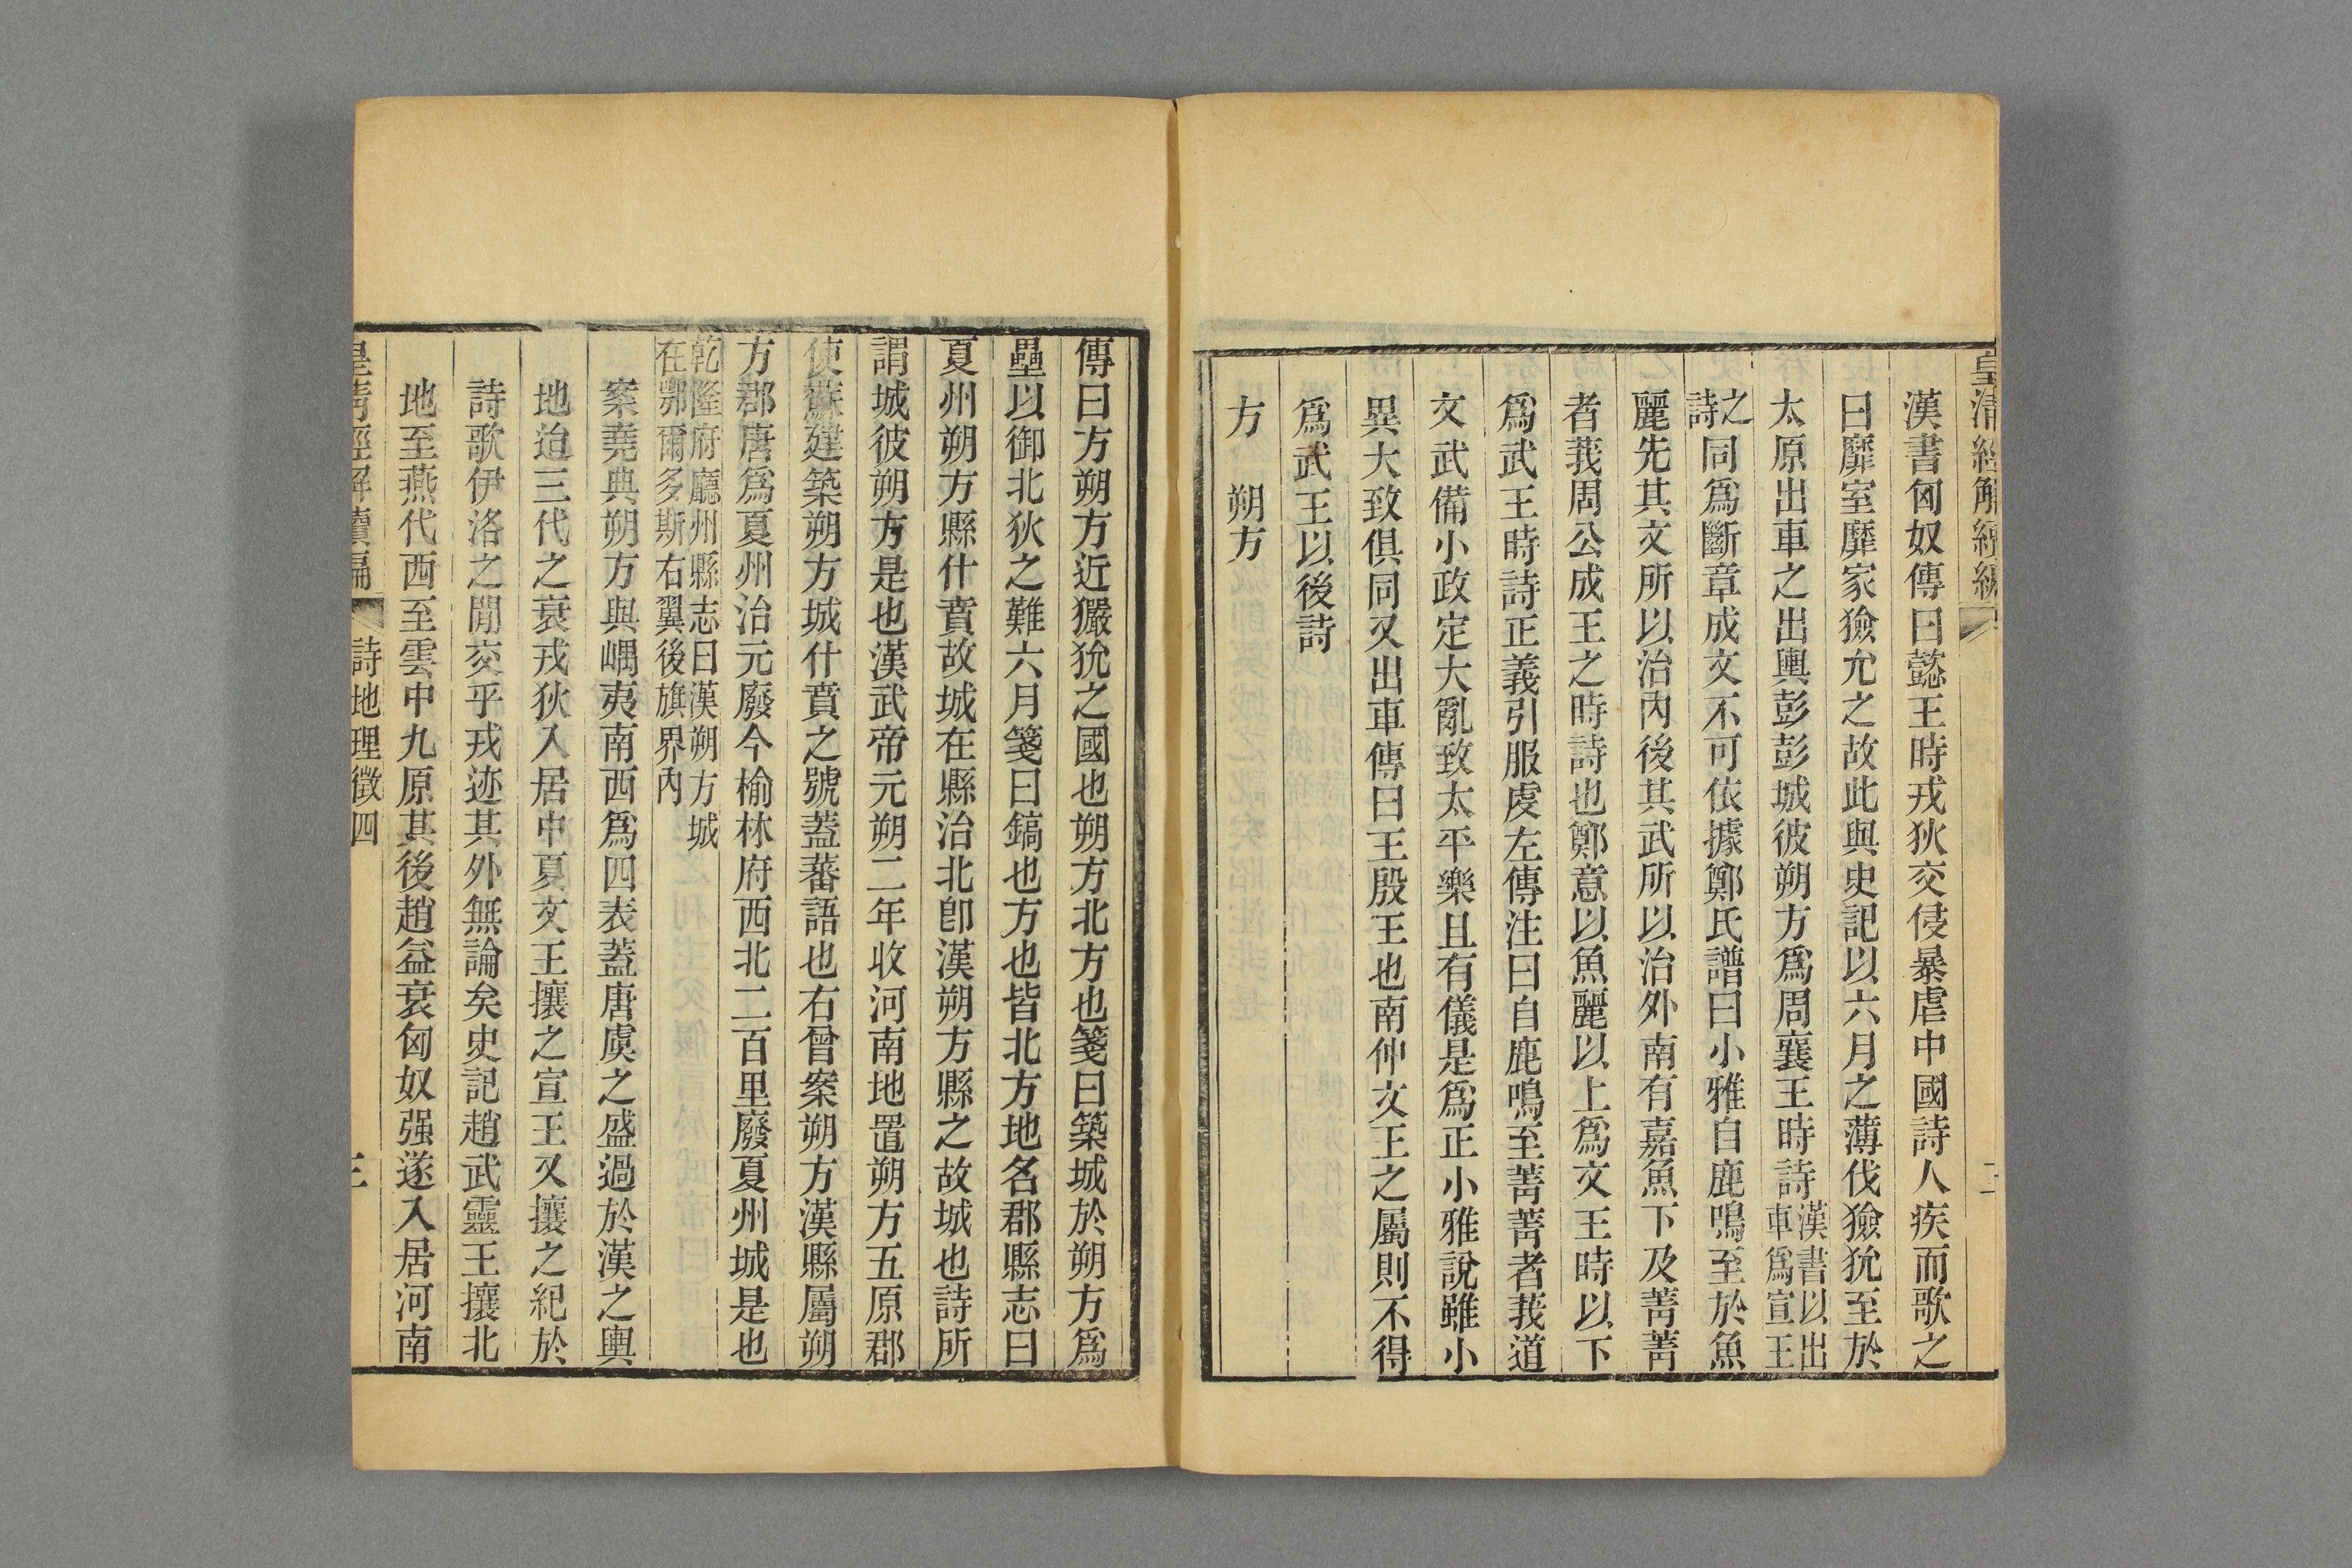 皇清經解續編
漢書匈奴傳曰懿王時戎狄交侵暴虐中國詩人疾而歌之
曰靡室靡家獫允之故此與史記以六月之薄伐獫狁至於
太原出車之出輿彭彭城彼朔方爲周襄王時詩漢書以出
車爲宣王
之
詩同爲斷章成文不可依據鄭氏譜曰小雅自鹿鳴至於魚
麗先其文所以治內後其武所以治外南有嘉魚下及菁菁
者莪周公成王之時詩也鄭意以魚麗以上爲文王時以下
爲武王時詩正義引服虔左傳注曰自鹿鳴至菁菁者莪道
文武備小政定大亂致太平樂且有儀是爲正小雅說雖小
異大致俱同又出車傳曰王殷王也南仲文王之屬則不得
爲武王以後詩
方　朔方
傳曰方朔方近玁狁之國也朔方北方也箋曰築城於朔方爲
壘以御北狄之難六月箋曰鎬也方也皆北方地名郡縣志曰
夏州朔方縣什賁故城在縣治北卽漢朔方縣之故城也詩所
謂城彼朔方是也漢武帝元朔二年收河南地置朔方五原郡
使蘇建築朔方城什賁之號蓋蕃語也右曾案朔方漢縣屬朔
方郡唐爲夏州治元廢今榆林府西北二百里廢夏州城是也
乾隆府廳州縣志曰漢朔方城
在鄂爾多斯右翼後旗界內
案堯典朔方與嵎夷南西爲四表蓋唐虞之盛過於漢之輿
地迨三代之衰戎狄入居中夏文王攘之宣王又攘之紀於
詩歌伊洛之閒交乎戎迹其外無論矣史記趙武靈王攘北
地至燕代西至雲中九原其後趙益衰匈奴强遂入居河南
皇清經解續編
詩地理徵四
三